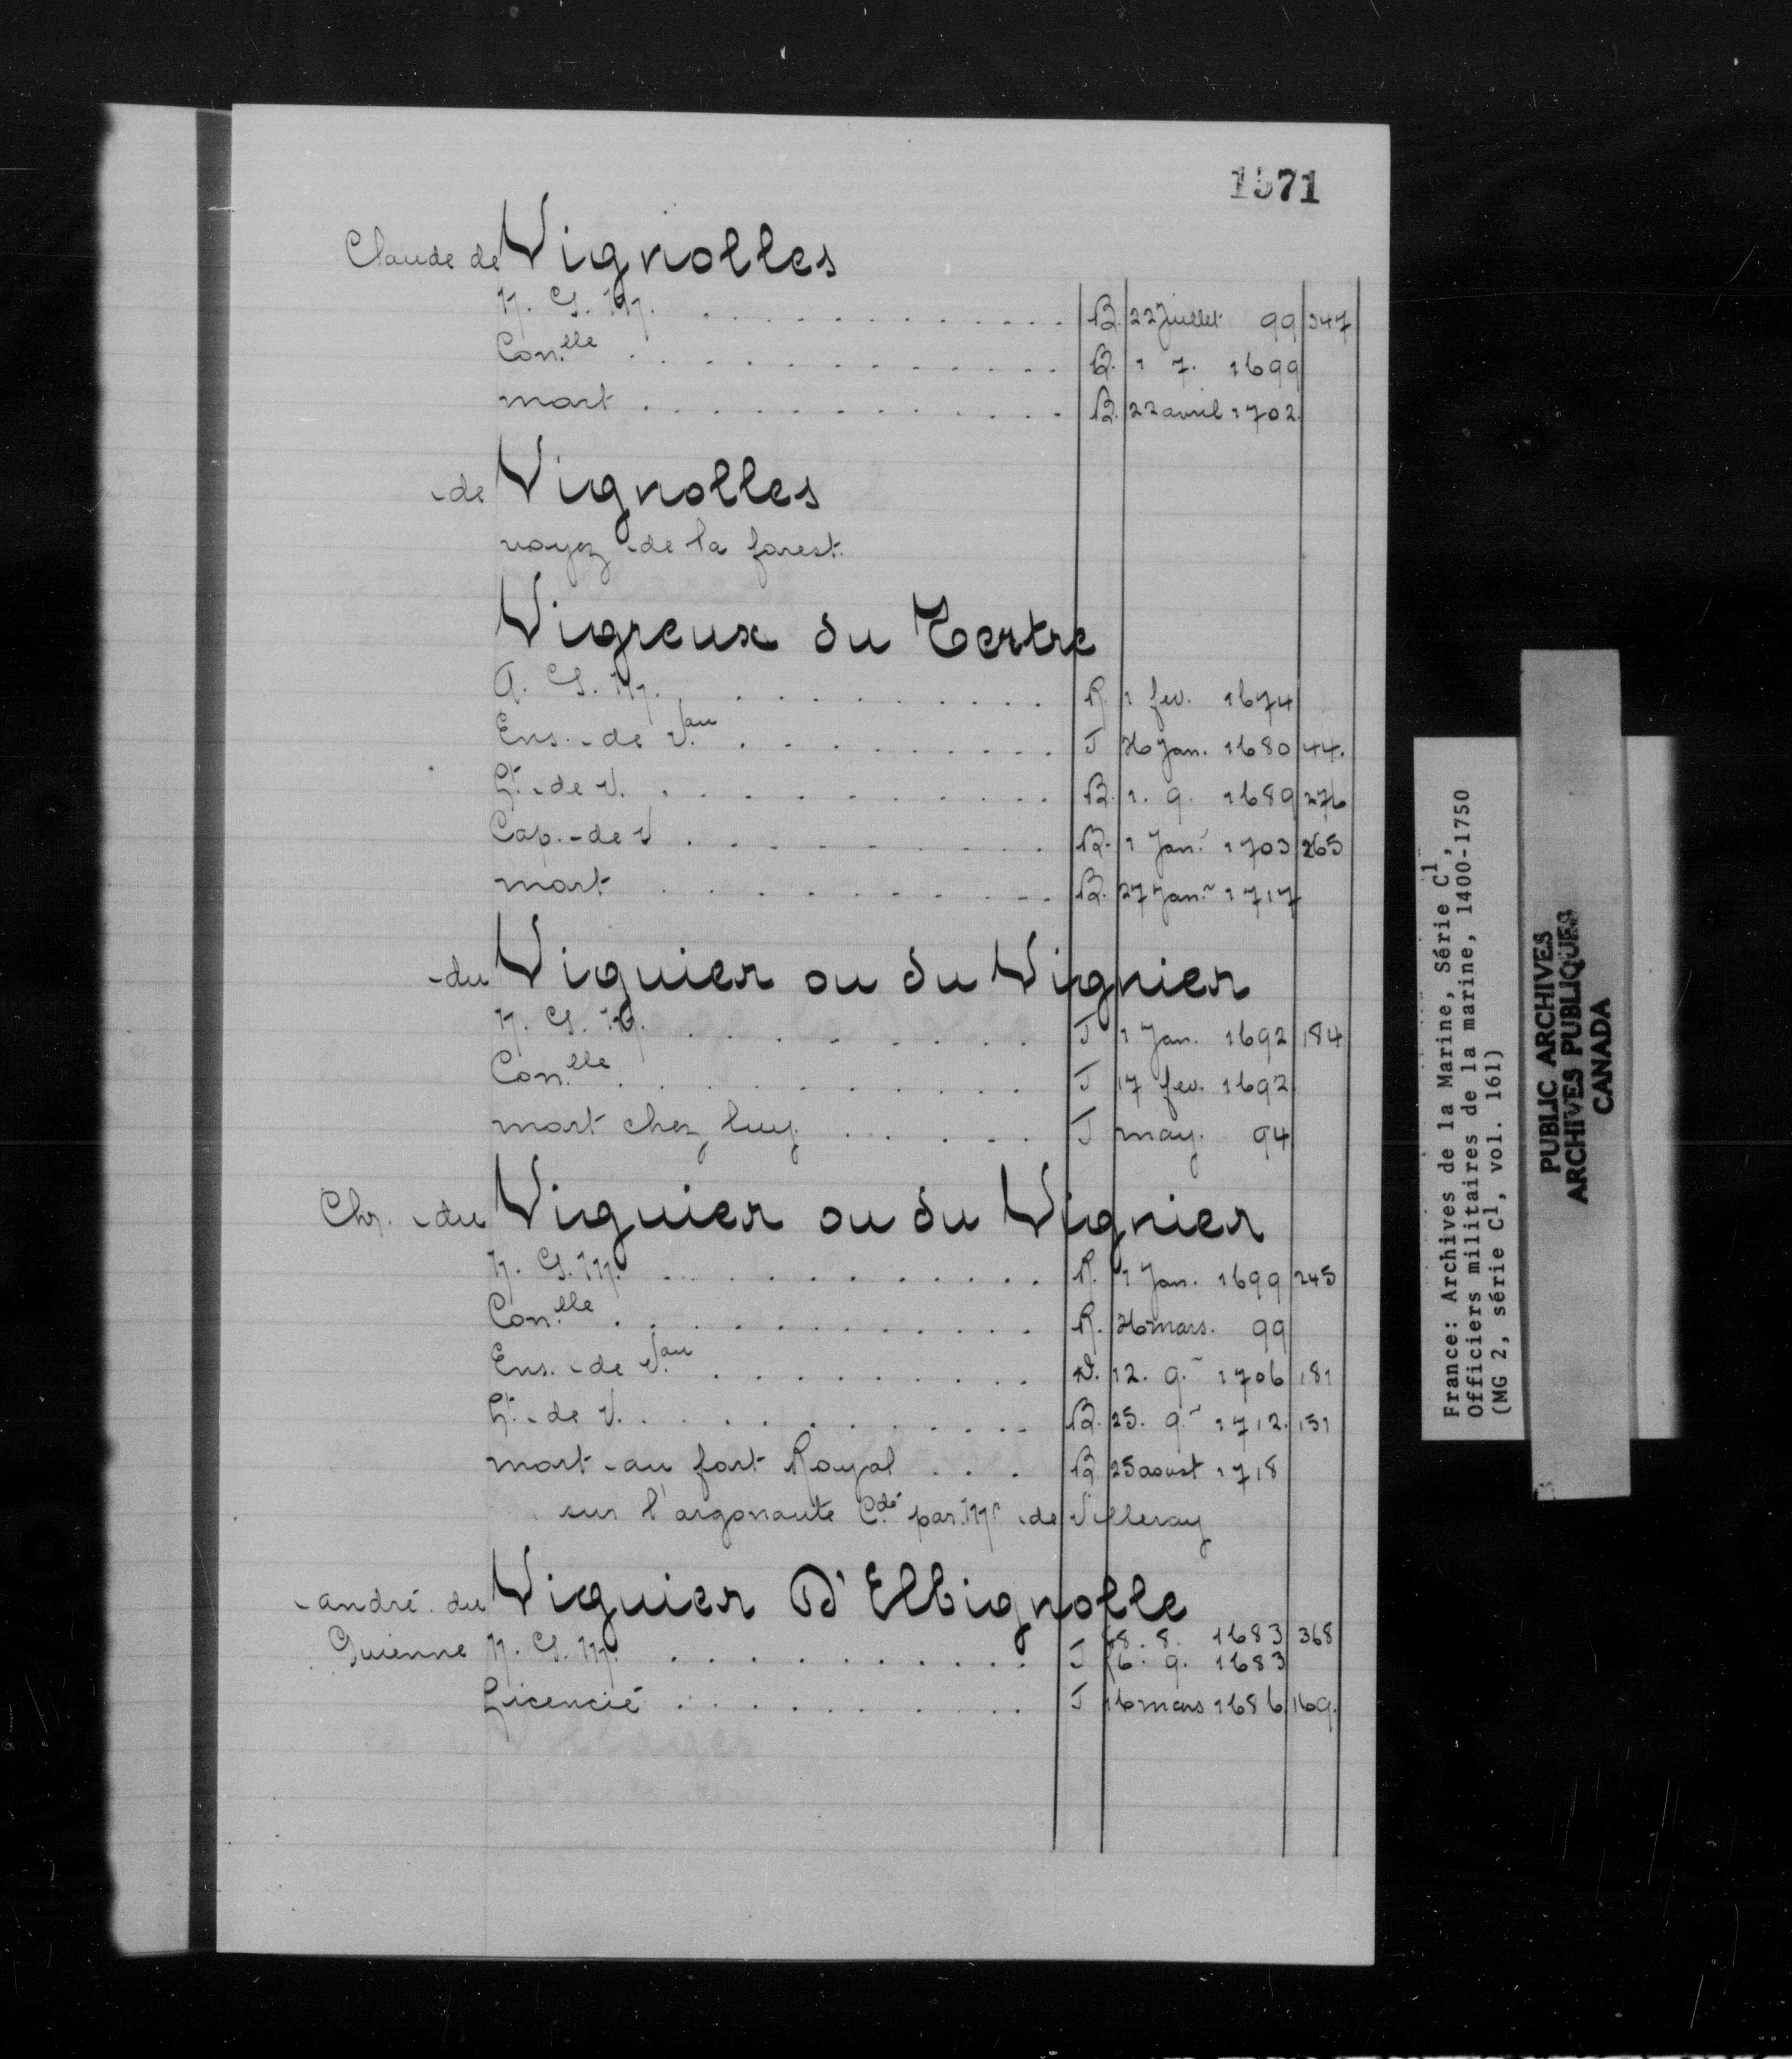 1571
Claude de Vignolles
N. G. M. . . . . . . . . . . . . B. 22 Juillet 99 347
Con.lle . . . . . . . . . . . . B. 1 7. 1699
mort . . . . . . . . . . . . B. 22 avril 1702.
de Vignolles
voyez de la forest.
Vigreux du Tertre
A. G. M. . . . . . . . . . . R. 1 fev. 1674
Ens. de V.au . . . . . . . . . . J 26 Jan. 1680 44.
Lt. de V. . . . . . . . . . . B. 1. 9. 1689 276
Cap. de V . . . . . . . . . . B. 1 Jan.r 1703 265
mort . . . . . . . . . . B. 27 Jan.r 1717
du Viguier ou du Vignier
N. G. M. . . . . . . . . . J 1 Jan. 1692 184
Con.lle . . . . . . . . . . . J 17 fev. 1692
mort chez luy . . . . . . J may. 94
Chr. du Viguier ou du Vignier
N. G. M. . . . . . . . . . . . R. 1 Jan. 1699 245
Con.lle . . . . . . . . . . . R. 26 mars. 99
Ens. de V.au . . . . . . . . . . D. 12. 9.r 1706 181
Lt. de V. . . . . . . . . . . . B. 25. 9.r 1712. 151
mort au fort Royal . . . B 25 aoust 1718
sur l'argonaute C.dé par Mr de Villeray
andré du Viguier D'Elbignolle
8. 8. 1683 368
Guienne N. G. M. . . . . . . . . . . . J 6. 9. 1683
Licencié . . . . . . . . . . J 16 mars 1686 169.
France: Archives de la Marine, Série C1,
Officiers militaires de la marine, 1400-1750
(MG 2, série C1, vol. 161)
PUBLIC ARCHIVES
ARCHIVES PUBLIQUES
CANADA